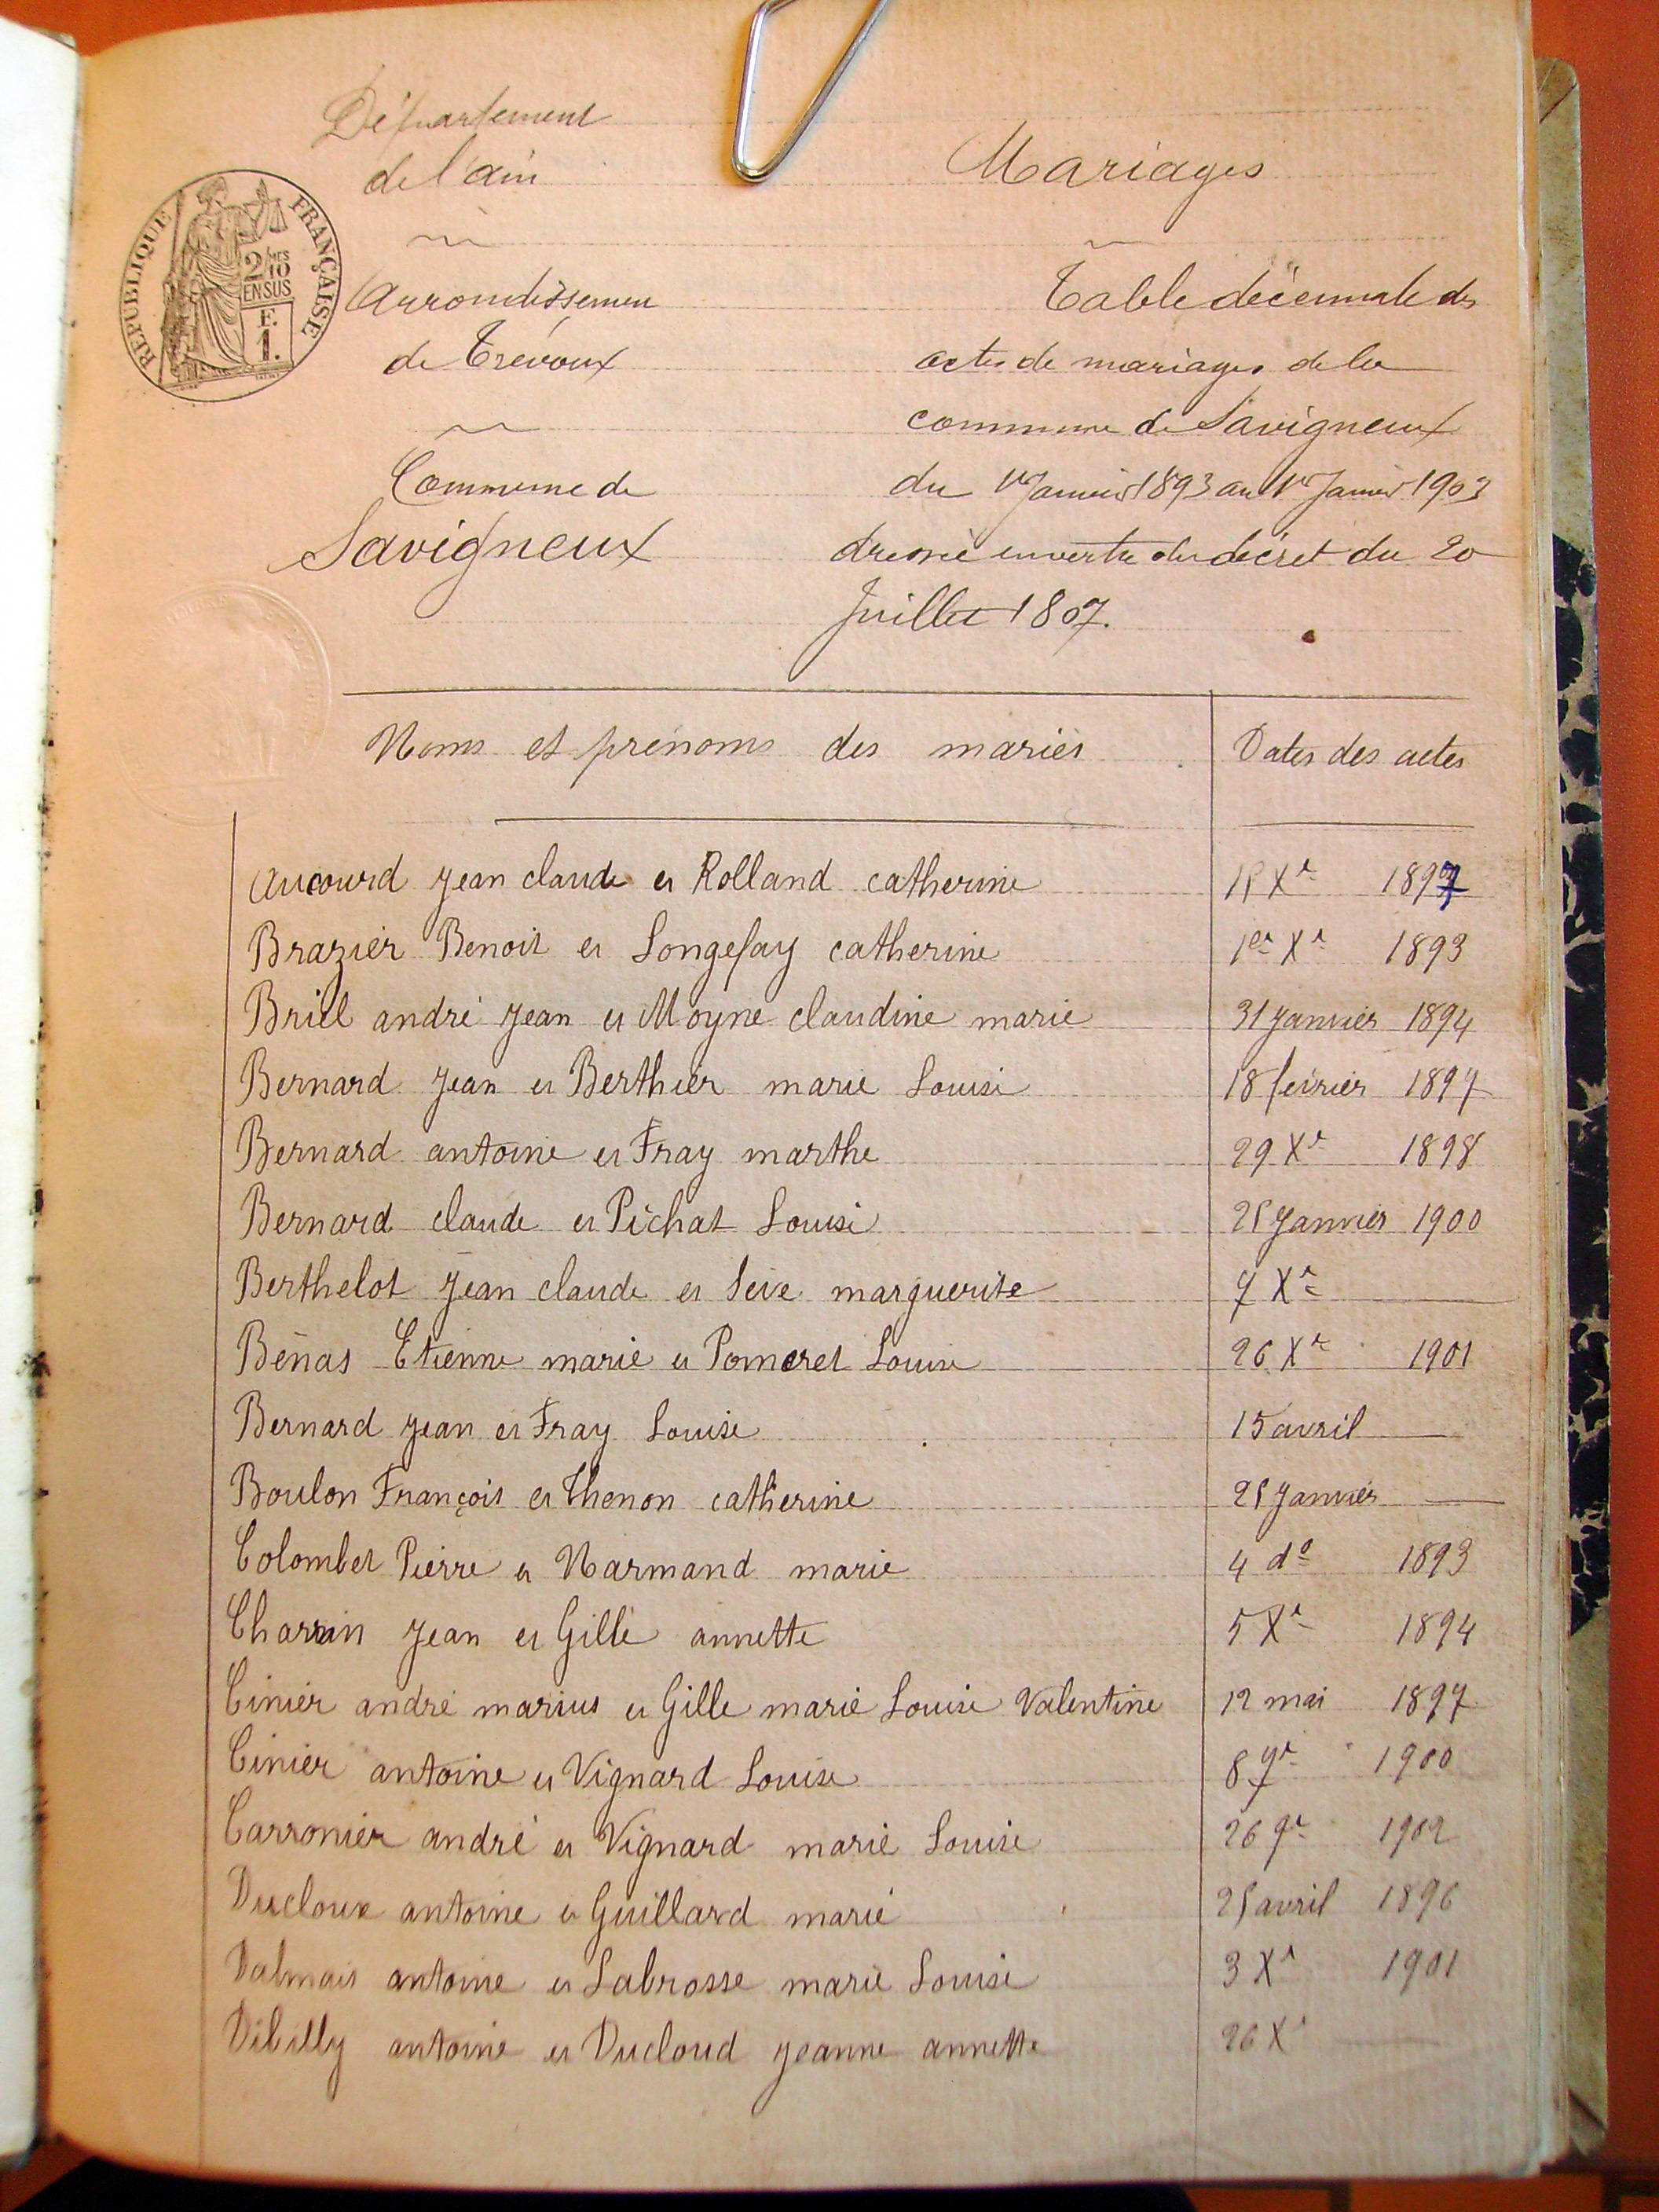 Département
de l'ain
Mariages
REPUBLIQUE FRANÇAISE
2/MES 10
EN SUS
E.
1.
Arrondissement
de Trévoux
Commune de
Savigneux
Table décennale des
actes de mariages de la
commune de Savigneux
du 1er Janvier 1893 au 1er Janvier 1903
dressée en vertu du décret du 20
Juillet 1807.
Noms et prénoms des mariés Dates des actes
Aucourd Jean claude et Rolland catherine 15 Xre 1897
Brazier Benoit et Longefay catherine 1er Xre 1893
Briel andré Jean et Moyne claudine marie 31 Janvier 1894
Bernard Jean et Berthier marie Louise 18 février 1897
Bernard antoine et Fray marthe 29 Xre 1898
Bernard claude et Pichat Louise 25 Janvier 1900
Berthelot Jean claude et Sève marguerite 7 Xre —
Bénas Etienne marie et Pomeret Louise 26 Xre 1901
Bernard Jean et Fray Louise 15 avril —
Boulon François et Thenon catherine 25 Janvier —
Colombet Pierre et Narmand marie 4 do 1893
Charrin Jean et Gille annette 5 Xre 1894
Cinier andré marius et Gille marie Louise Valentine 12 mai 1897
Cinier antoine et Vignard Louise 8 9re 1900
Carronier andré et Vignard marie Louise 26 9re 1902
Ducloux antoine et Guillard marie 25 avril 1896
Dalmais antoine et Labrosse marie Louise 3 Xre 1901
Dibilly antoine et Ducloud Jeanne annette 26 Xre —